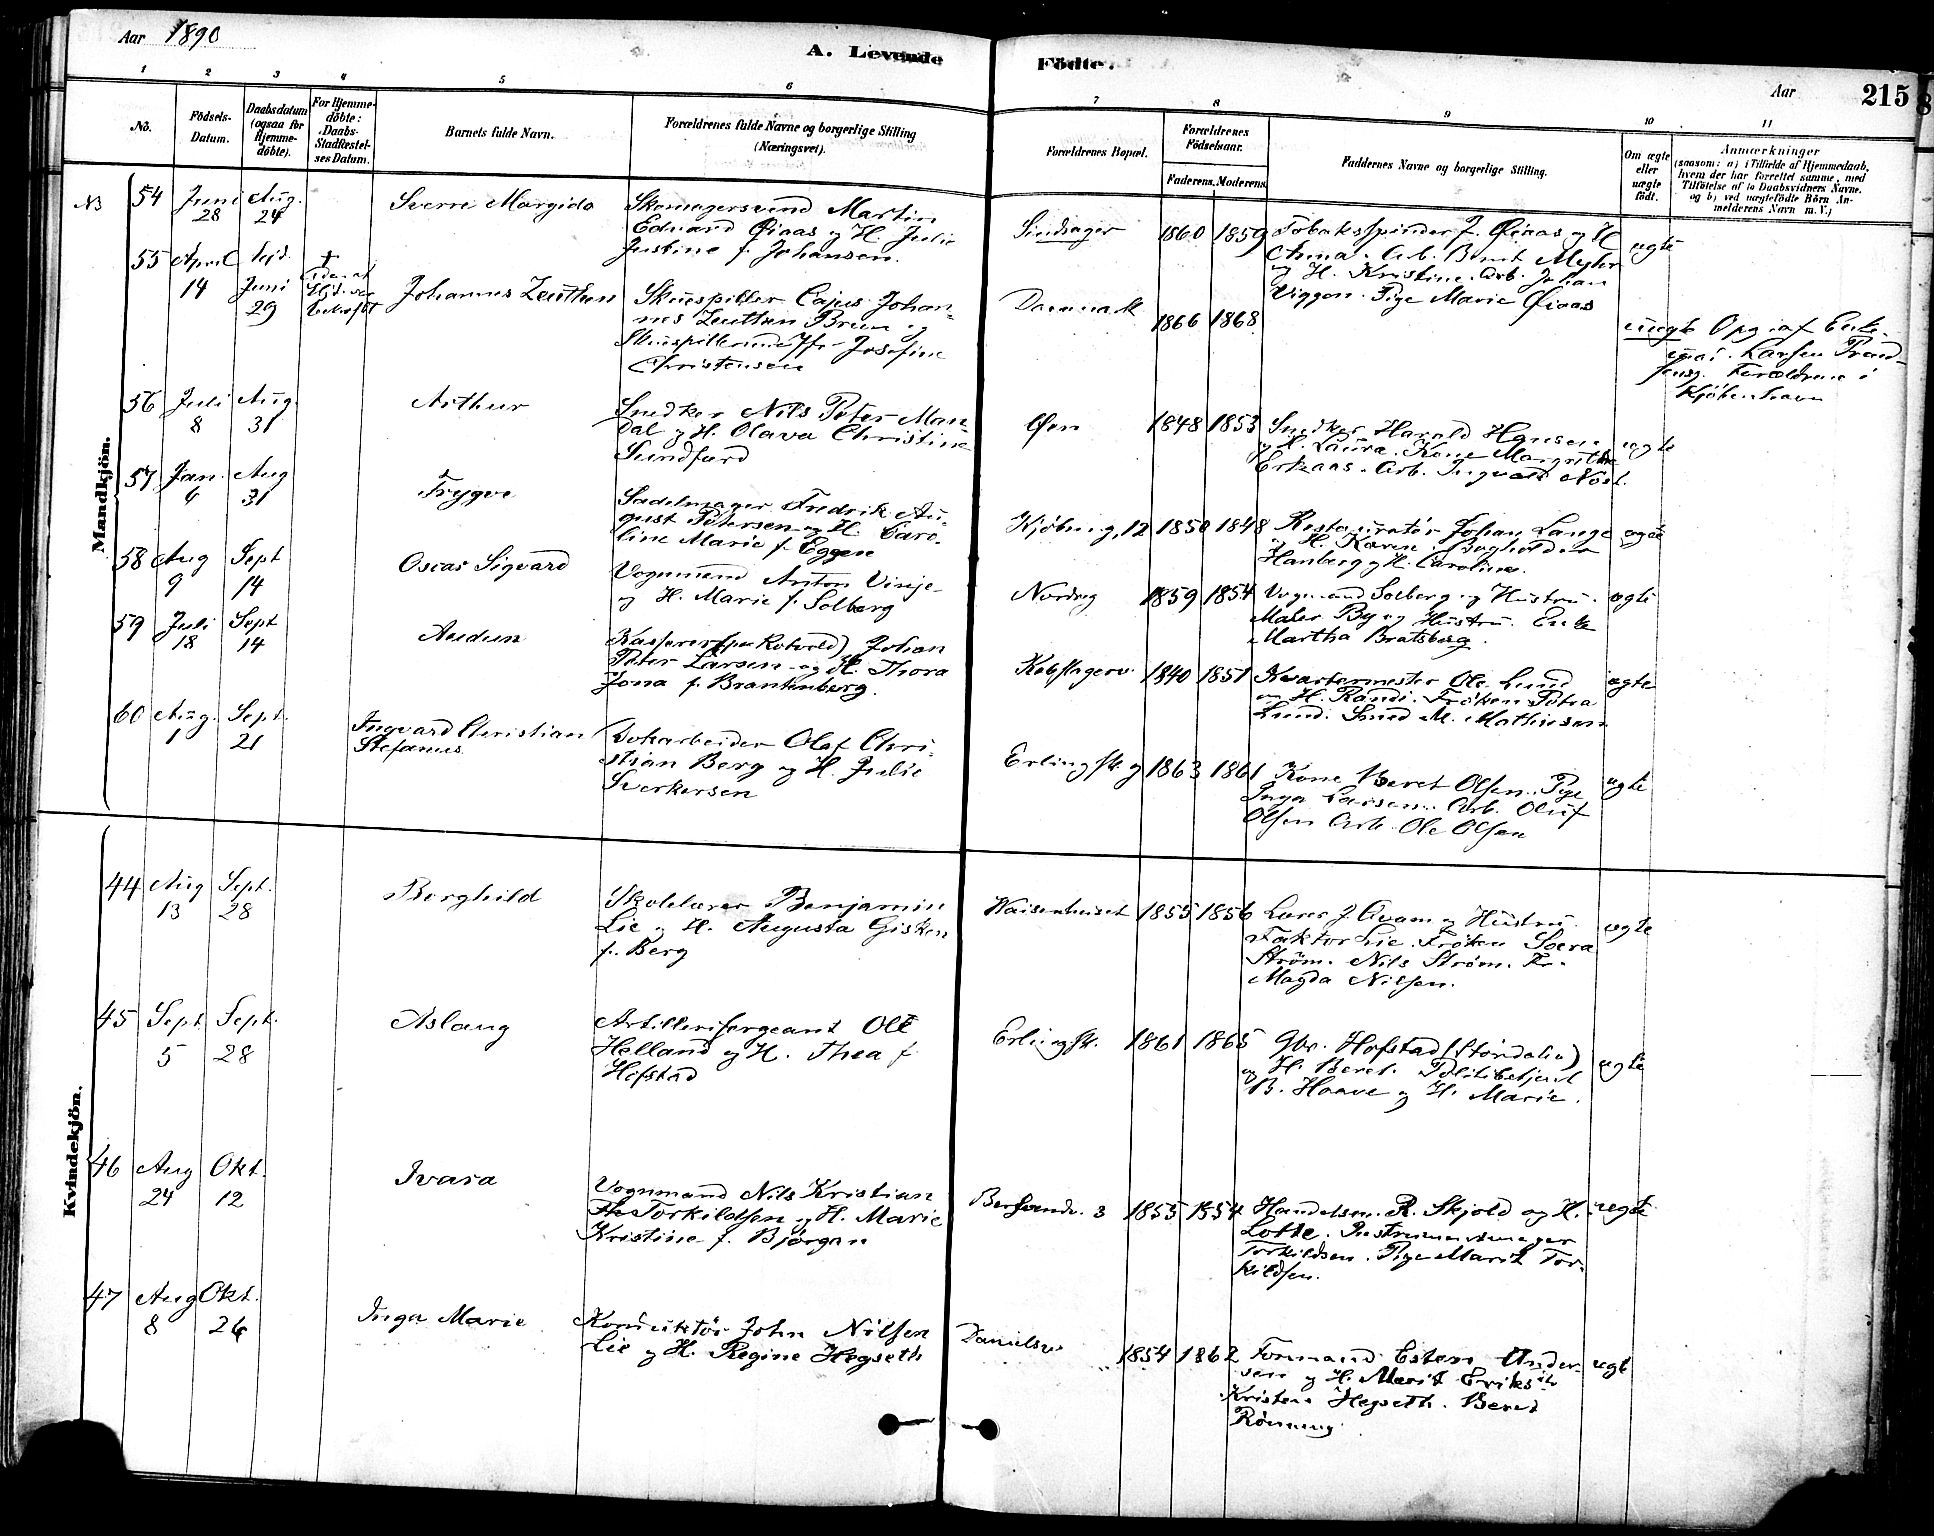 Aar 1890
A. Levende
Födte.
Aar
215
1 2 3 4 5 6 7 8 9 10 11
No.
Födsels-
Datum.
Daabsdatum
(ogsaa for
Hjemme-
döbte).
For Hjemme-
döbte:
Daabs-
Stadfæstel-
ses Datum.
Barnets fulde Navn.
Forældrenes fulde Navne og borgerlige Stilling
(Næringsvei).
Forældrenes Bopæl.
Forældrenes
Födselsaar.
Faderens. Moderens.
Faddernes Navne og borgerlige Stilling.
Om ægte
eller
uægte
födt.
Anmærkninger
(saasom: a) i Tilfælde af Hjemmedaab,
hvem der har forrettet samme, med
Tilföielse af to Daabsvidners Navne.
og b) ved uægtefödte Börn An-
melderens Navn m. V.)
Mandkjön.
54
Juni
28
Aug.
24
Sverre Margido
Martin
Eduard Øiaas og H. Julie
Justine f. Johansen
1860 1859
J. Øiaas og H
Anna. Arb. Bernt Myhr
og H. Kristine. Arb. Johan
Viggen. Pige Marie Øiaas
ægte
55
April
14
Juni
29
Johannes Zeuthen
Skuespiller Cajus Johan-
nes Zeuthen Bruun og
Skuespillerinde Josefine
Christensen
Danmark
1866 1868
uægte
Opg. af
Larsen
Forældrene i
Kjöbenhavn
56
Juli
8
Aug.
31
Arthur
Snedker Nils Peter Man-
dal og H. Olava Christine
Sundfærd
Øen
1848 1853
Snedker Harald Hansen
og H. Laura. Kone Margrethe
Erkaas. Arb. Ingvald Nöst.
ægte
57
Jan.
6
Aug
31
Trygve
Sadelmager Fredrik Au-
gust Petersen og H. Caro-
line Marie f. Eggen
Kjøbm.g. 12
1850 1848
Restauratör Johan Lange
og H. Karen. Bogholder
Hanberg og H. Caroline.
ægte
58
Aug
9
Sept
14
Oscar Sigvard
Vognmand Anton Vinje
og H. Marie f. Solberg
Nordreg
1859 1854
Vognmand Solberg og Hustru.
Maler By og Hustru. Enke
Martha Bratsberg.
ægte
59
Juli
18
Sept
14
Audun
Kasserer Johan
Peter Larsen og H. Thora
Jona f. Brantenberg.
1840 1851
Kvartermester Ole Lund
og H. Randi. Fröken Petra
Lund. Smed M. Mathiesen
ægte
60
Aug.
1
Sept.
21
Ingvard Christian
Stefanus
Dokarbeider Olaf Chri-
stian Berg og H. Julie
Sverkersen
Erling sk. g
1863 1861
Kone Beret Olsen. Pige
Inga Larsen. Arb. Oluf
Olsen Arb. Ole Olsen
ægte
Kvindekjön.
44
Aug
13
Sept.
28
Borghild
Skolelærer Benjamin
Lie og H. Augusta Gisken
f. Berg
Waisenhuset
1855 1856
Lærer J. Kvam og Hustru.
Faktor Lie. Fröken
Ström. Nils Ström. Fr.
Magda Nilsen.
ægte
45
Sept
5
Sept.
28
Aslaug
Artillerisergeant Ole
Helland og H. Thea f.
Hofstad
Erling sk.
1861 1865
Gbr. Hofstad (Stördalen)
og H. Beret. Politibetjent
B. Haave og H. Marie.
ægte
46
Aug
24
Okt.
12
Ivara
Vognmand Nils Kristian
Torkildsen og H. Marie
Kristine f. Björgan
1855 1854
Handelsm. R. Skjold og H.
Lotte. Instrumentmager
Torkildsen. Pige Marit Tor-
kildsen.
ægte
47
Aug
8
Okt.
26
Inga Marie
Konduktör John Nilsen
Lie og H. Regine Hegseth
Danielsv.
1854 1862
Formand Esten Ander-
sen og H. Marit Eriks
Kristen Hegseth. Beret
Rönning
ægte